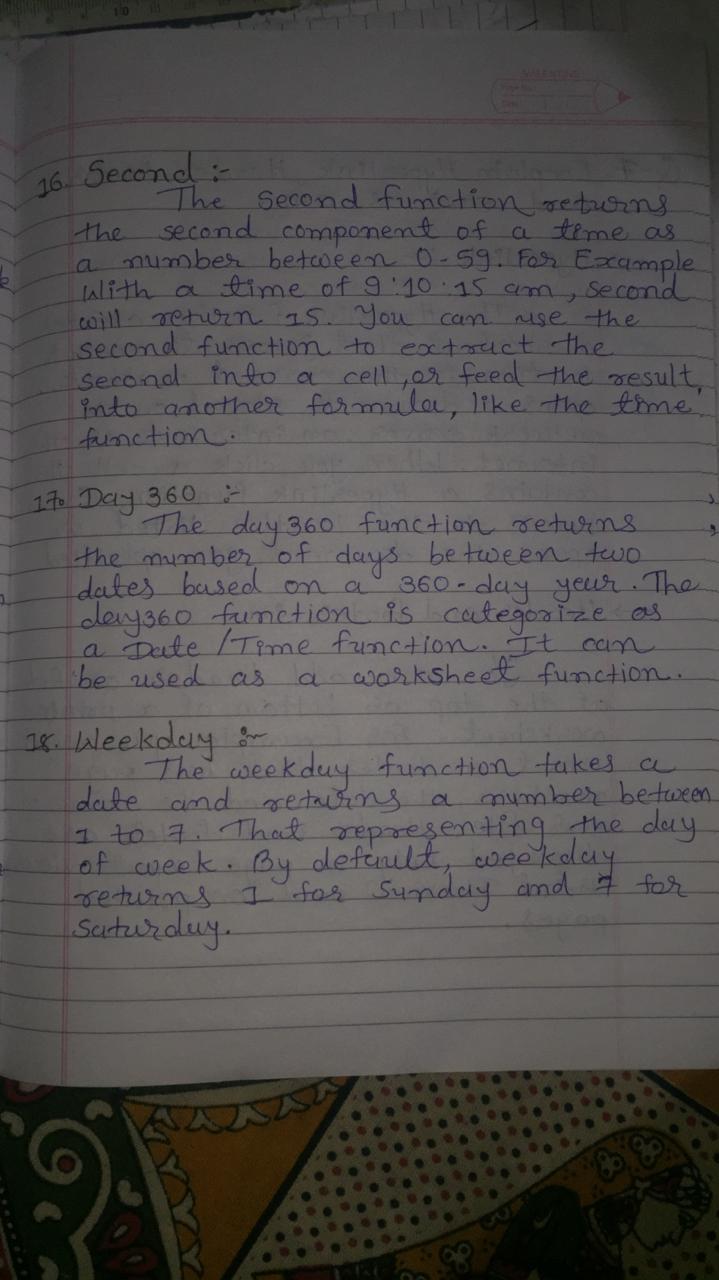 VALENTINE
Page No.
Date
16. Second :-
The second function returns
the second component of a time as
a number between 0-59. For Example
With a time of 9:10:15 am, second
will return 15. You can use the
second function to extract the
second into a cell, or feed the result,
into another formula, like the time
function.
17. Day 360 :-
The day 360 function returns
the number of days between two
dates based on a 360-day year. The
day360 function is categorize as
a Date /Time function. It can
be used as a worksheet function.
18. Weekday :-
The weekday function takes a
date and returns a number between
1 to 7. That representing the day
of week. By default, weekday
returns 1 for Sunday and 7 for
Saturday.